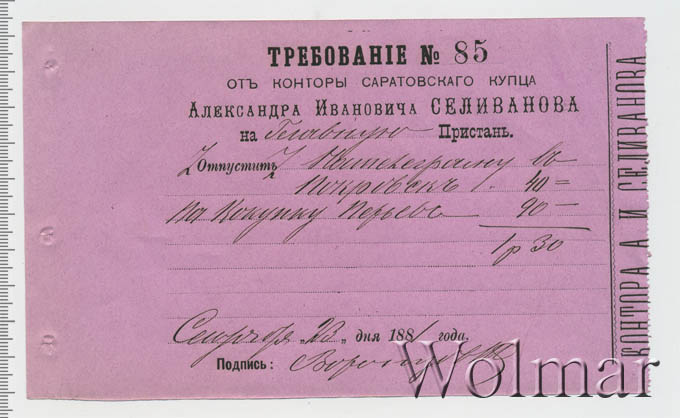 ТРЕБОВАНІЕ № 85
ОТЪ КОНТОРЫ САРАТОВСКАГО КУПЦА
АЛЕКСАНДРА ИВАНОВИЧА СЕЛИВАНОВА
на Главную Пристань.
Отпустить
40=
На Покупку Перьевъ 90-
1р 30
23 дня 1881 года,
Подпись:
КОНТОРА А И СЕЛИВАНОВА
Wolmar